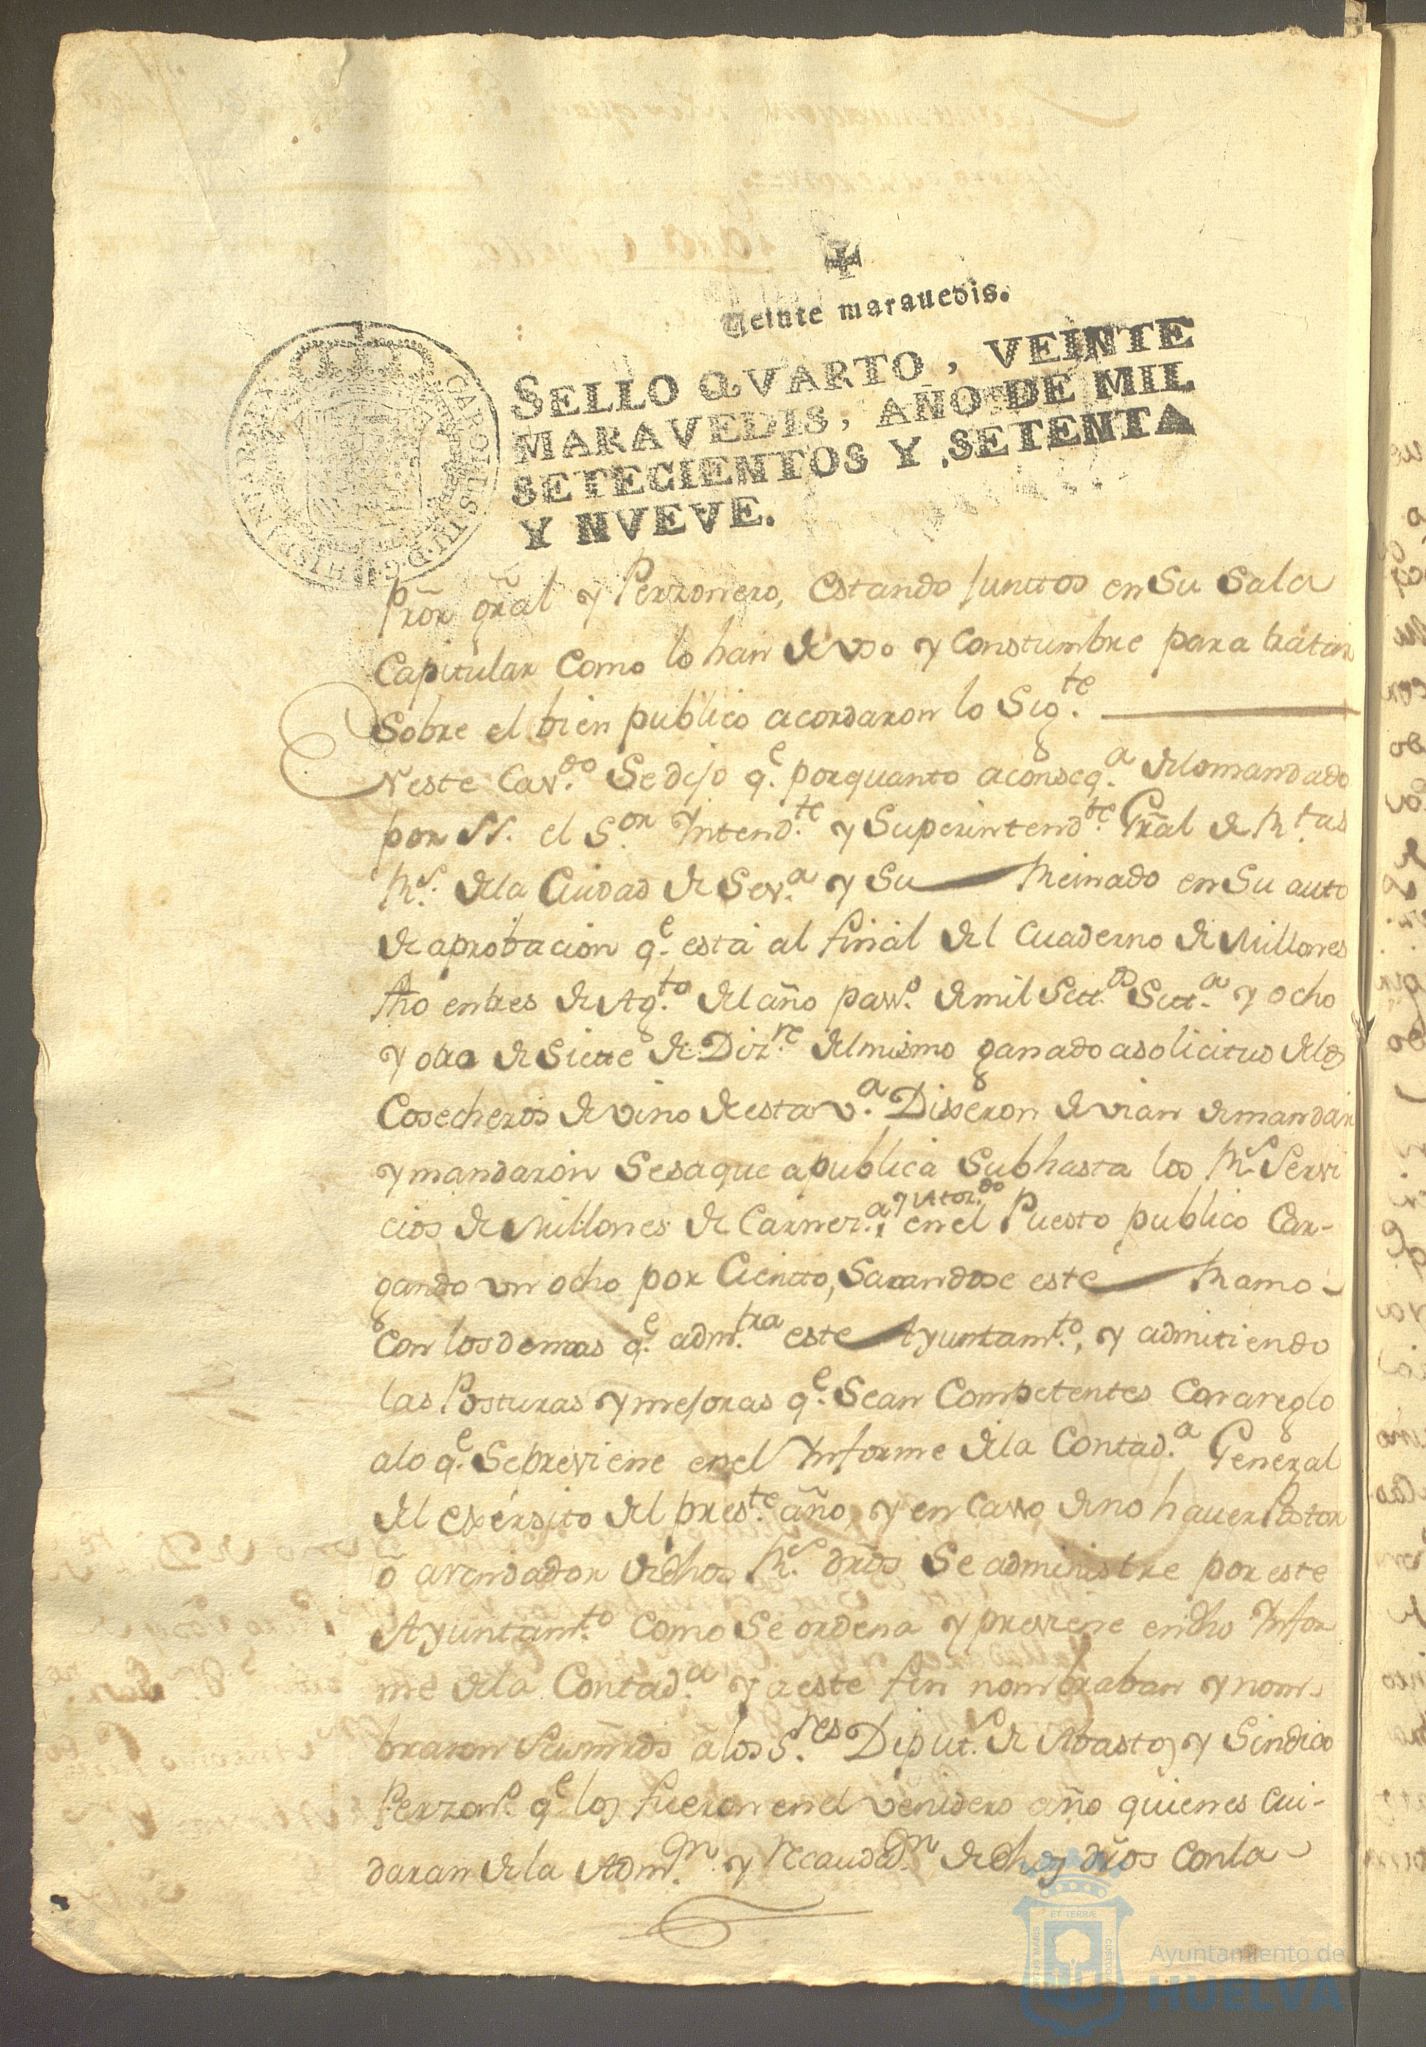 Veinte marauedis.
SELLO QVARTO, VEINTE
MARAVEDIS, AÑO DE MIL
SETECIENTOS Y SETENTA
Y NVEVE.
CAROLUS III D G HISPANIAR REX
Pror gral y Perzonero, estando Junttos en Su Sala
Capitular como lo han de vso y Constumbre para tratar
Sobre el bien publico acordaron lo Sigte.
Neste Cavdo. Se dijo qe. porquanto a conseqa. delo mandado
por SS. el Sor. Yntendte. y Superintendte. Gral de Rtas
Rs. dela Ciudad de Seva. y Su Reinado en Su auto
de aprobacion qe. está al final del Cuaderno de Millones
fho en tres de Agto. del año passo. de mil Settos. Setta. y ocho
y otro de Siette de Dizre. del mismo ganado a solicitud delos
Cosecheros de vino de esta va. Dixeron devian de mandar
y mandaron Se saque a publica Subhasta los Rs. Servi
cios de Millones de Carneza. en el Puesto publico Car-
gando un ocho por Cientto, Sacandose este Ramo
Con los demas qe. admtra este Ayuntamto., y admitiendo
las Posturas y mejoras qe. Sean Competentes Con areglo
alo qe. Se previene en el Ynforme dela Contada. General
del exérsito del preste. año, y en Casso de no haver Postor
ó arendador de dhos Rs. dros Se administre por este
Ayuntamto. como Se ordena y previene en dho Ynfor
me dela Contada. y a este fin nombraban y nom
braron a los Sres. Diputs. de Abastos y Sindico
Perzono. qe. los fueron en el venidero año quienes cui-
daran dela Admon. y recaudaon. de dhos dros Con la
ET TERRÆ
Ayuntamiento de
HUELVA